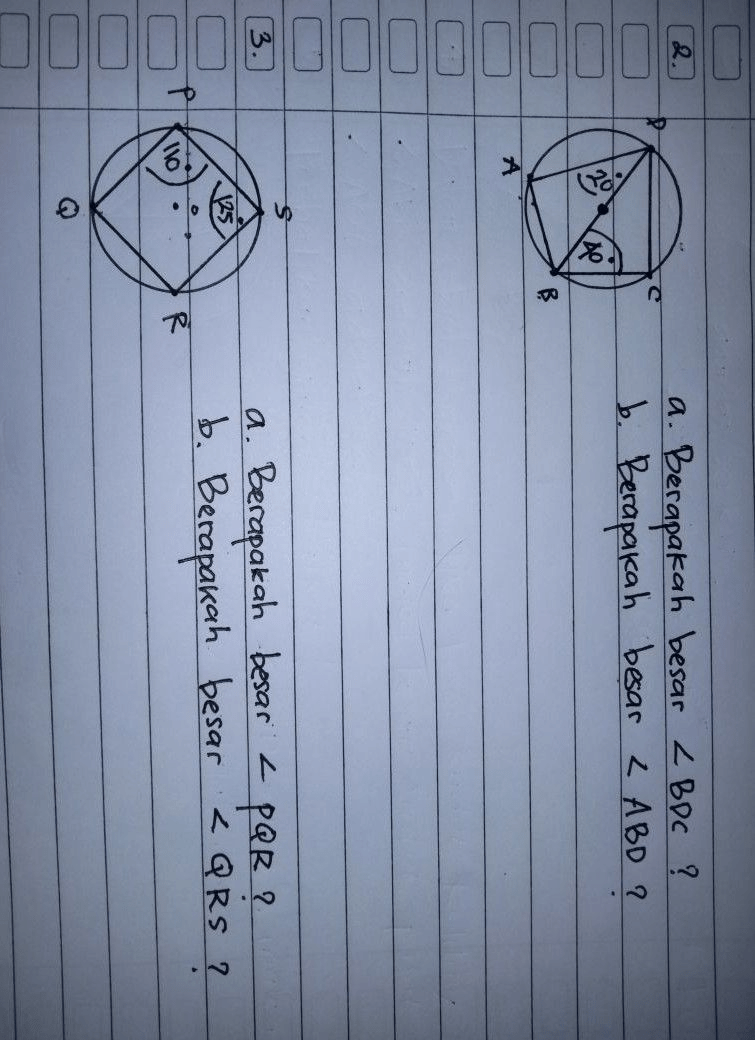 2.
D
C
A
B
20°
40°
a. Berapakah besar < BDC ?
b. Berapakah besar < ABD ?
3.
S
P
R
Q
125
110
a. Berapakah besar < PQR ?
b. Berapakah besar < QRS ?